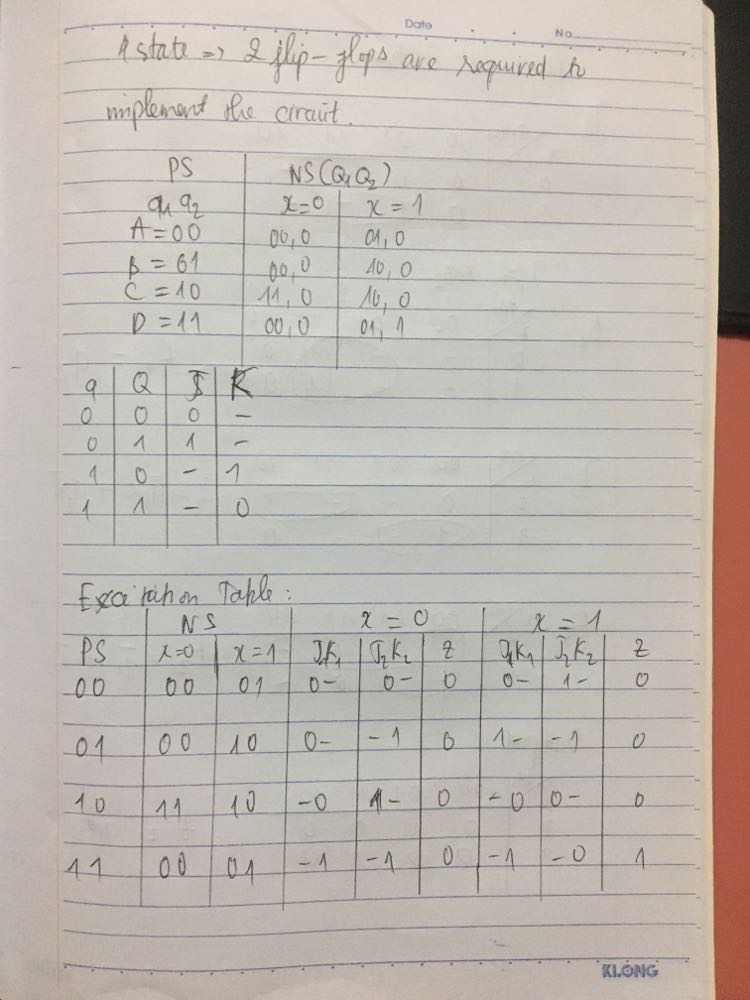 Date No.
4 state => 2 flip-flops are required to
implement the circuit.
PS NS(Q1Q2)
q1 q2 x=0 x=1
A=00 00,0 01,0
B=01 00,0 10,0
C=10 11,0 10,0
D=11 00,0 01,1
q Q J K
0 0 0 -
0 1 1 -
1 0 - 1
1 1 - 0
Excitation Table:
NS x=0 x=1
PS x=0 x=1 J1K1 J2K2 Z J1K1 J2K2 Z
00 00 01 0- 0- 0 0- 1- 0
01 00 10 0- -1 0 1- -1 0
10 11 10 -0 1- 0 -0 0- 0
11 00 01 -1 -1 0 -1 -0 1
KLONG